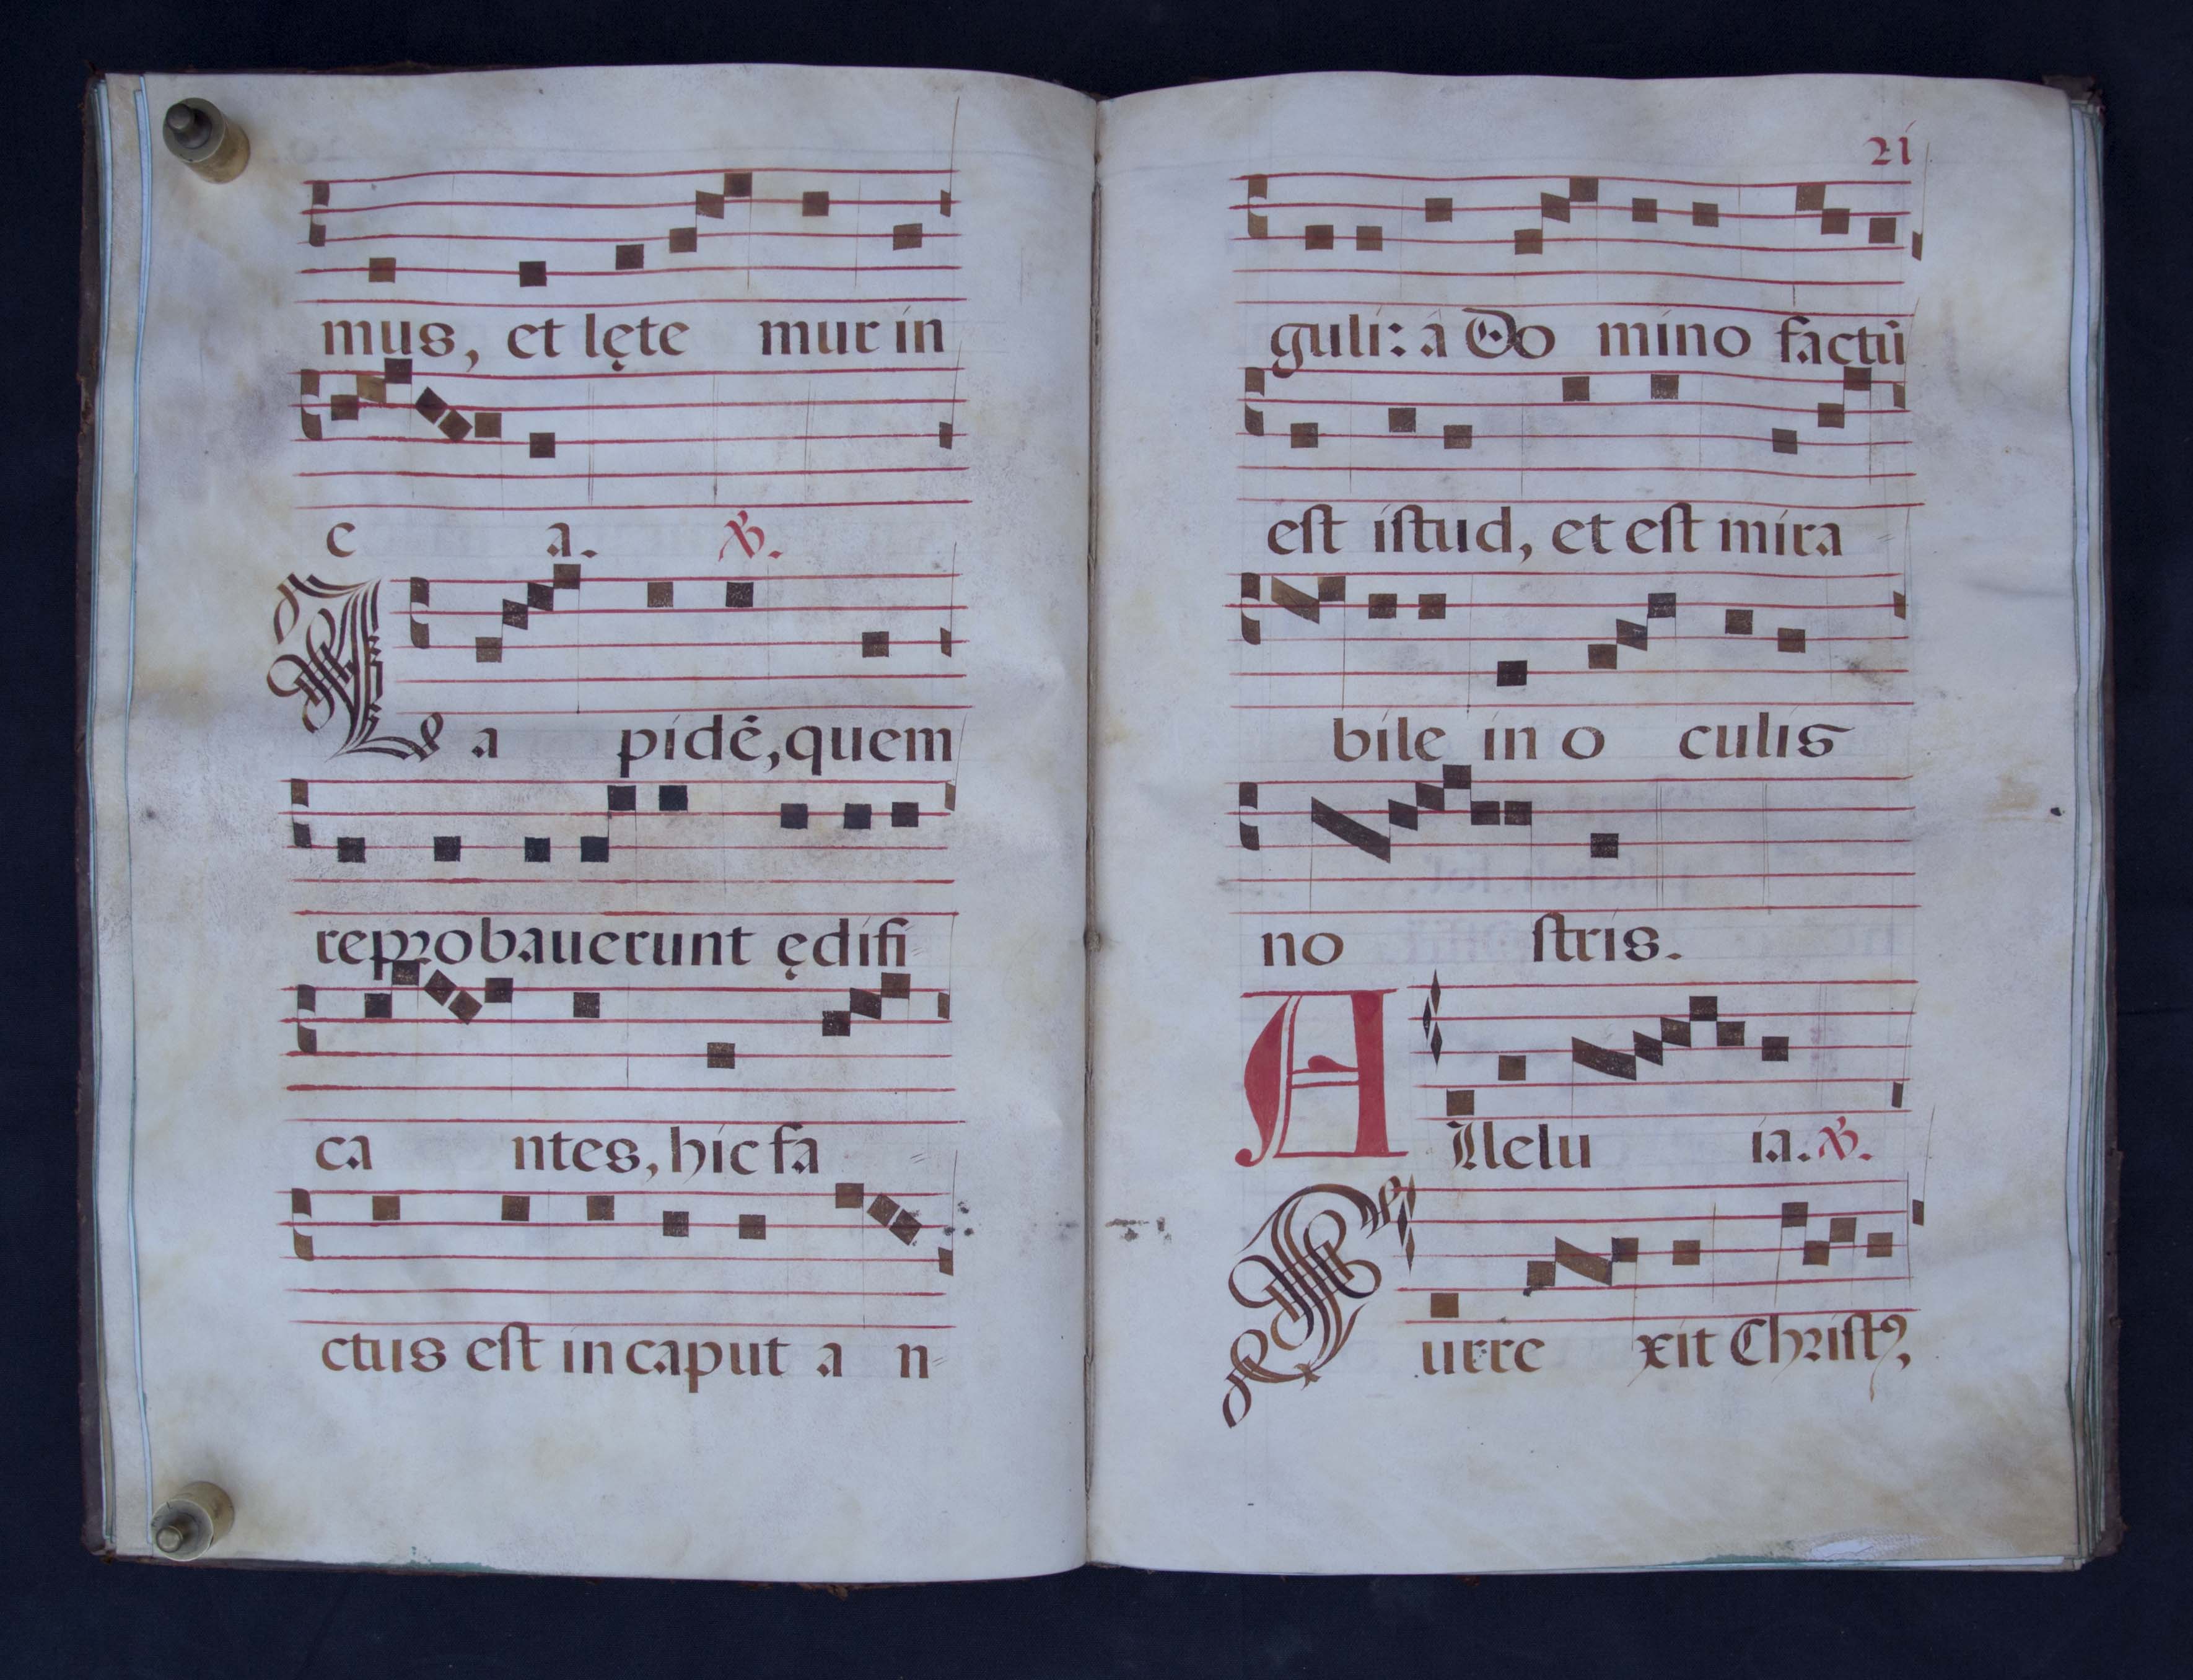 mus, et lęte mur in
e a. ℣.
La pidē, quem
reprobauerunt ędifi
ca ntes, hic fa
ctus est in caput a n
21
guli: á Do mino factū
est istud, et est mira
bile in o culis
no stris.
Allelu ia. ℣.
Surre xit Christꝰ,